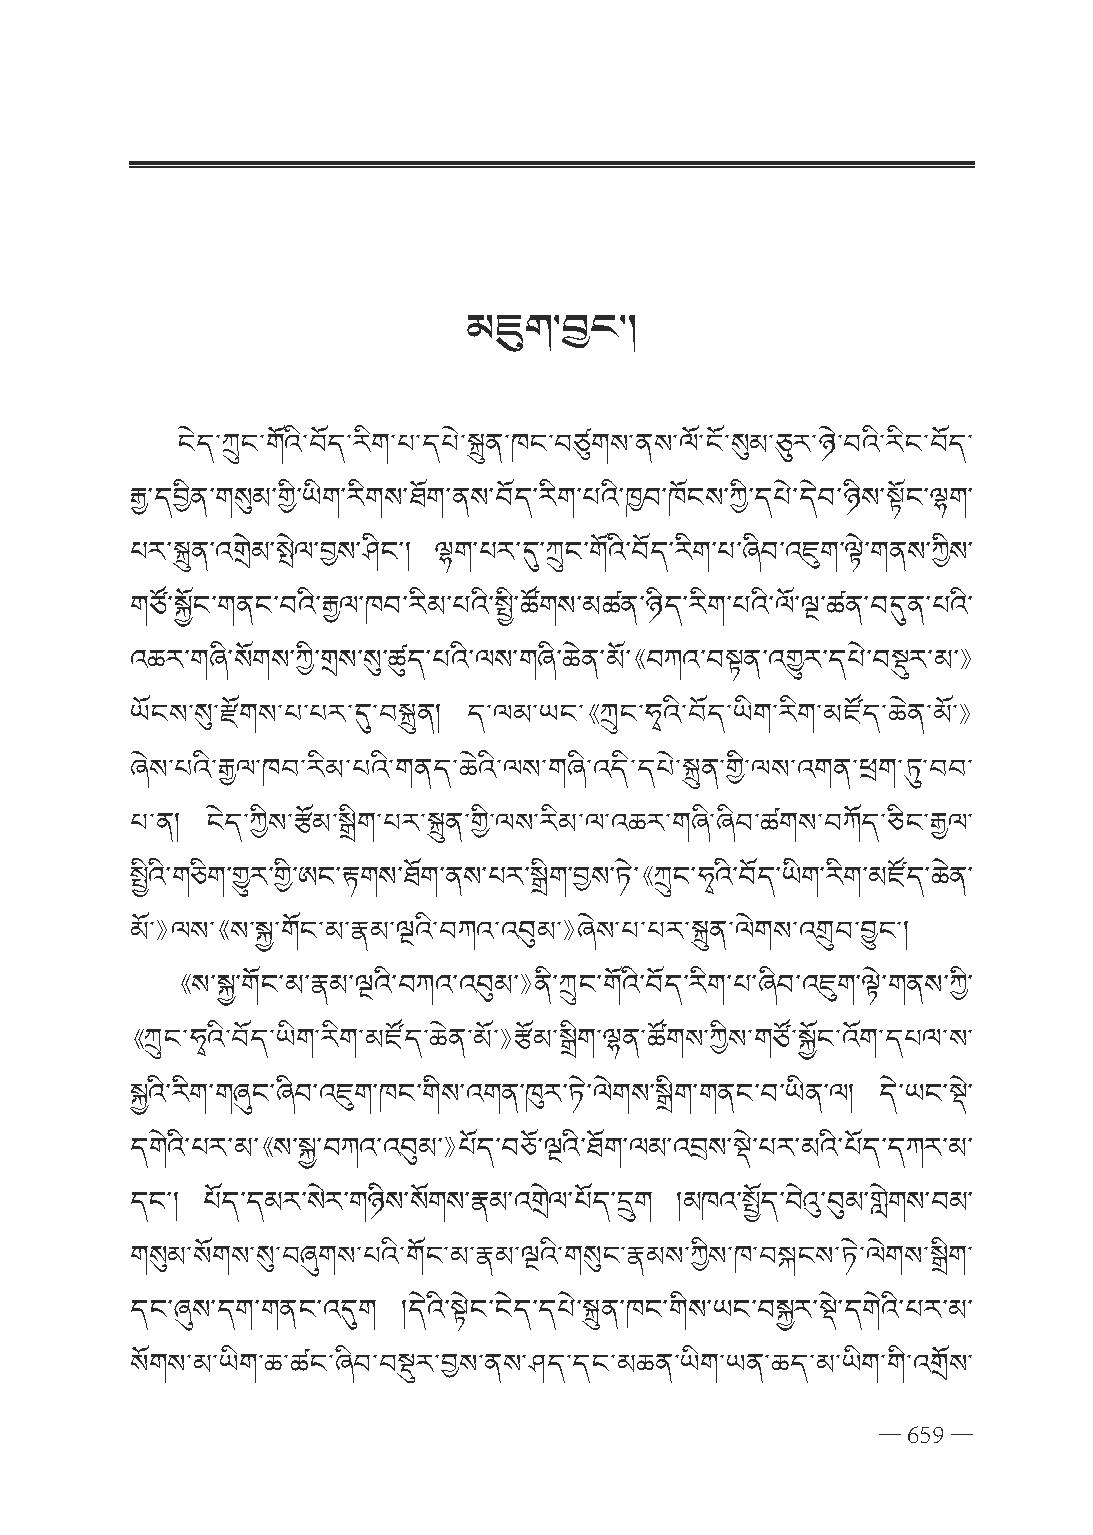 མཇུག་བྱང་།
ངེད་ཀྲུང་གོའི་བོད་རིག་པ་དཔེ་སྐྲུན་ཁང་བཙུགས་ནས་ལོ་ངོ་སུམ་ཅུར་ཉེ་བའི་རིང་བོད་
རྒྱ་དབྱིན་གསུམ་གྱི་ཡིག་རིགས་ཐོག་ནས་བོད་རིག་པའི་ཁྱབ་ཁོངས་ཀྱི་དཔེ་དེབ་ཉིས་སྟོང་ལྷག་
པར་སྐྲུན་འགྲེམ་སྤེལ་བྱས་ཤིང་། ལྷག་པར་དུ་ཀྲུང་གོའི་བོད་རིག་པ་ཞིབ་འཇུག་ལྟེ་གནས་ཀྱིས་
གཙོ་སྐྱོང་གནང་བའི་རྒྱལ་ཁབ་རིམ་པའི་སྤྱི་ཚོགས་མཚན་ཉིད་རིག་པའི་ལོ་ལྔ་ཚན་བདུན་པའི་
འཆར་གཞི་སོགས་ཀྱི་གྲས་སུ་ཚུད་པའི་ལས་གཞི་ཆེན་མོ་《བཀའ་བསྟན་འགྱུར་དཔེ་བསྡུར་མ་》
ཡོངས་སུ་རྫོགས་པ་པར་དུ་བསྐྲུན། ད་ལམ་ཡང་《ཀྲུང་ཧྭའི་བོད་ཡིག་རིག་མཛོད་ཆེན་མོ་》
ཞེས་པའི་རྒྱལ་ཁབ་རིམ་པའི་གནད་ཆེའི་ལས་གཞི་འདི་དཔེ་སྐྲུན་གྱི་ལས་འགན་ཕྲག་ཏུ་བབ་
པ་ན། ངེད་ཀྱིས་རྩོམ་སྒྲིག་པར་སྐྲུན་གྱི་ལས་རིམ་ལ་འཆར་གཞི་ཞིབ་ཚགས་བཀོད་ཅིང་རྒྱལ་
སྤྱིའི་གཅིག་གྱུར་གྱི་ཨང་རྟགས་ཐོག་ནས་པར་སྒྲིག་བྱས་ཏེ་《ཀྲུང་ཧྭའི་བོད་ཡིག་རིག་མཛོད་ཆེན་
མོ་》ལས་《ས་སྐྱ་གོང་མ་རྣམ་ལྔའི་བཀའ་འབུམ་》ཞེས་པ་པར་སྐྲུན་ལེགས་འགྲུབ་བྱུང་།
《ས་སྐྱ་གོང་མ་རྣམ་ལྔའི་བཀའ་འབུམ་》ནི་ཀྲུང་གོའི་བོད་རིག་པ་ཞིབ་འཇུག་ལྟེ་གནས་ཀྱི་
《ཀྲུང་ཧྭའི་བོད་ཡིག་རིག་མཛོད་ཆེན་མོ་》རྩོམ་སྒྲིག་ལྷན་ཚོགས་ཀྱིས་གཙོ་སྐྱོང་འོག་དཔལ་ས་
སྐྱའི་རིག་གཞུང་ཞིབ་འཇུག་ཁང་གིས་འགན་ཁུར་ཏེ་ལེགས་སྒྲིག་གནང་བ་ཡིན་ལ། དེ་ཡང་སྡེ་
དགེའི་པར་མ་《ས་སྐྱ་བཀའ་འབུམ་》པོད་བཅོ་ལྔའི་ཐོག་ལམ་འབྲས་སྡེ་པར་མའི་པོད་དཀར་མ་
དང་། པོད་དམར་སེར་གཉིས་སོགས་རྣམ་འགྲེལ་པོད་དྲུག །མཁའ་སྤྱོད་བེའུ་བུམ་གླེགས་བམ་
གསུམ་སོགས་སུ་བཞུགས་པའི་གོང་མ་རྣམ་ལྔའི་གསུང་རྣམས་ཀྱིས་ཁ་བསྐངས་ཏེ་ལེགས་སྒྲིག་
དང་ཞུས་དག་གནང་འདུག །དེའི་སྟེང་ངེད་དཔེ་སྐྲུན་ཁང་གིས་ཡང་བསྐྱར་སྡེ་དགེའི་པར་མ་
སོགས་མ་ཡིག་ཆ་ཚང་ཞིབ་བསྡུར་བྱས་ནས་ཤད་དང་མཆན་ཡིག་ཡན་ཆད་མ་ཡིག་གི་འགྲོས་
— 659 —